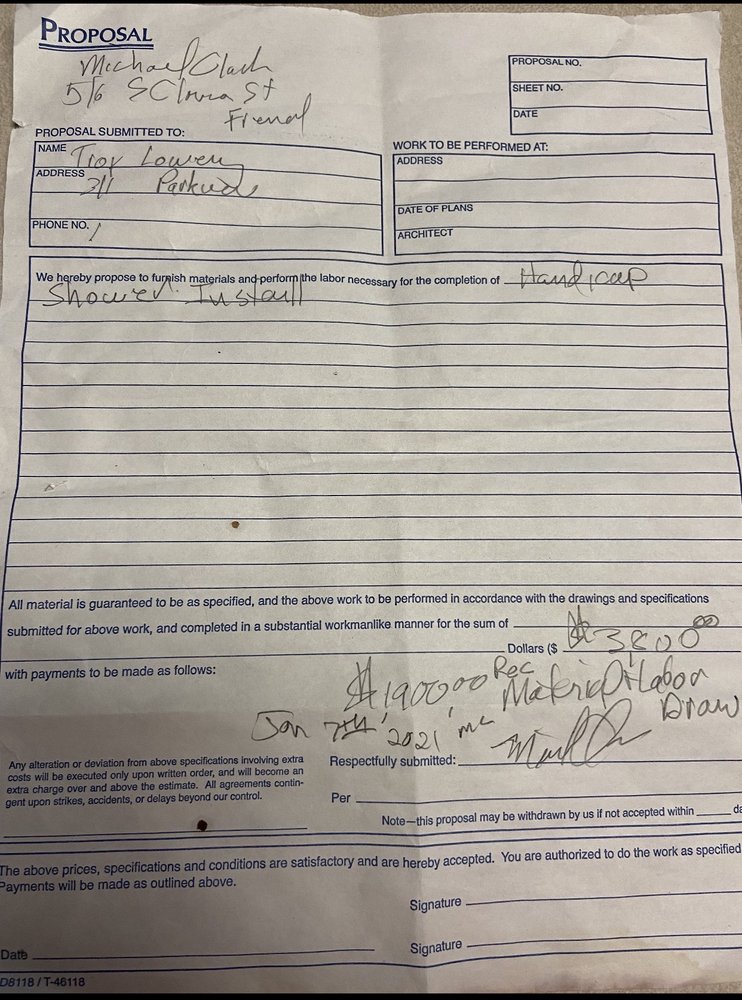 PROPOSAL
Michael Clark
516 S
St
PROPOSAL NO.
SHEET NO.
DATE
PROPOSAL SUBMITTED TO:
NAME Troy Lowery
ADDRESS 311
PHONE NO.
WORK TO BE PERFORMED AT:
ADDRESS
DATE OF PLANS
ARCHITECT
We hereby propose to furnish materials and perform the labor necessary for the completion of Handicap
Shower Install
All material is guaranteed to be as specified, and the above work to be performed in accordance with the drawings and specifications
submitted for above work, and completed in a substantial workmanlike manner for the sum of
Dollars ($ $3800 00
with payments to be made as follows:
$1900.00 Rec Material + Labor
Draw
Jan 7th, 2021, mc
Any alteration or deviation from above specifications involving extra
costs will be executed only upon written order, and will become an
extra charge over and above the estimate. All agreements contin-
gent upon strikes, accidents, or delays beyond our control.
Respectfully submitted:
Per
Note—this proposal may be withdrawn by us if not accepted within da
The above prices, specifications and conditions are satisfactory and are hereby accepted. You are authorized to do the work as specified
Payments will be made as outlined above.
Signature
Date
Signature
D8118 / T-46118